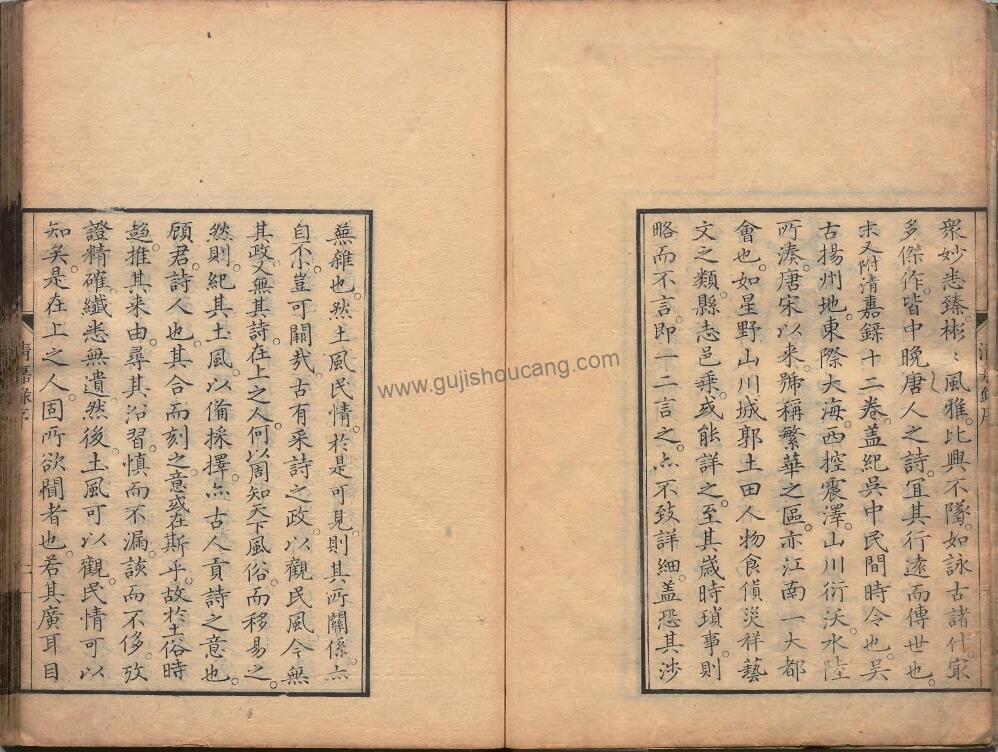 衆妙悉臻彬〻風雅比興不墜如詠古諸什㝡
多傑作皆中晚唐人之詩宜其行遠而傳世也
末又附清嘉錄十二卷蓋紀吳中民間時令也吳
古揚州地東際大海西控震澤山川衍沃水陸
所湊唐宋以來號稱繁華之區亦江南一大都
會也如星野山川城郭土田人物食貨災祥藝
文之類縣志邑乘或能詳之至其歲時瑣事則
略而不言即一二言之亦不致詳細蓋恐其涉
蕪雜也然土風民情於是可見則其所關係亦
自不小豈可闕哉古有采詩之政以觀民風今無
其政又無其詩在上之人何以周知天下風俗而移易之
然則紀其土風以備採擇亦古人貢詩之意也
顧君詩人也其合而刻之意或在斯乎故於土俗時
趨推其来由尋其沿習慎而不漏談而不侈攷
證精確纖悉無遺然後土風可以觀民情可以
知矣是在上之人固所欲聞者也若其廣耳目
清嘉錄序
www.gujishoucang.com